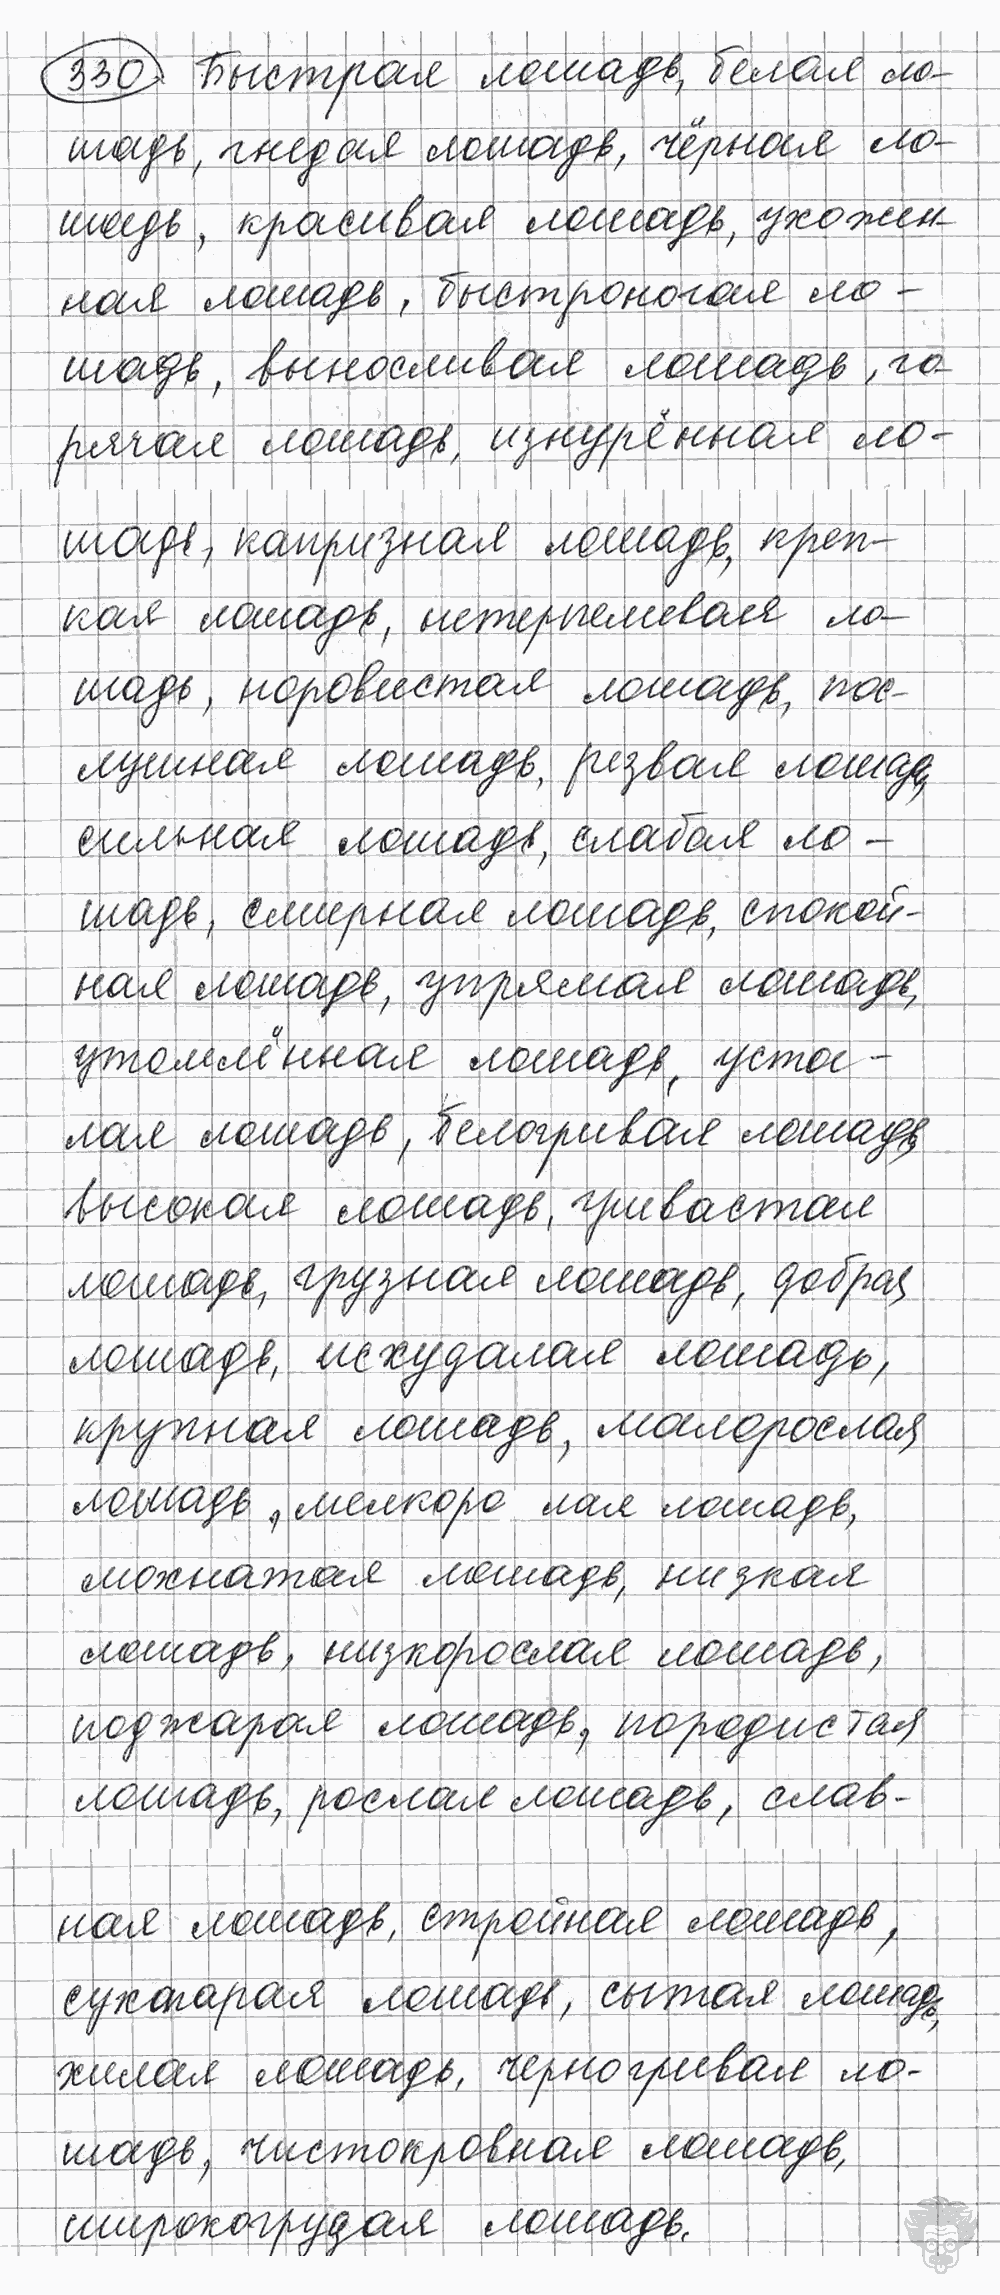 330. Быстрая лошадь, белая ло-
шадь, гнедая лошадь, чёрная ло-
шадь, красивая лошадь, ухожен-
ная лошадь, быстроногая ло-
шадь, выносливая лошадь, го-
рячая лошадь, изнурённая ло-
шадь, капризная лошадь, креп-
кая лошадь, нетерпеливая ло-
шадь, норовистая лошадь, пос-
лушная лошадь, резвая лошадь,
сильная лошадь, слабая ло-
шадь, смирная лошадь, спокой-
ная лошадь, упрямая лошадь,
утомлённая лошадь, уста-
лая лошадь, белогривая лошадь,
высокая лошадь, гривастая
лошадь, грузная лошадь, добрая
лошадь, исхудалая лошадь,
крупная лошадь, малорослая
лошадь, мелкоро лая лошадь,
мохнатая лошадь, низкая
лошадь, низкорослая лошадь,
поджарая лошадь, породистая
лошадь, рослая лошадь, слав-
ная лошадь, стройная лошадь,
сухопарая лошадь, сытая лошадь,
хилая лошадь, черногривая ло-
шадь, чистокровная лошадь,
широкогрудая лошадь.